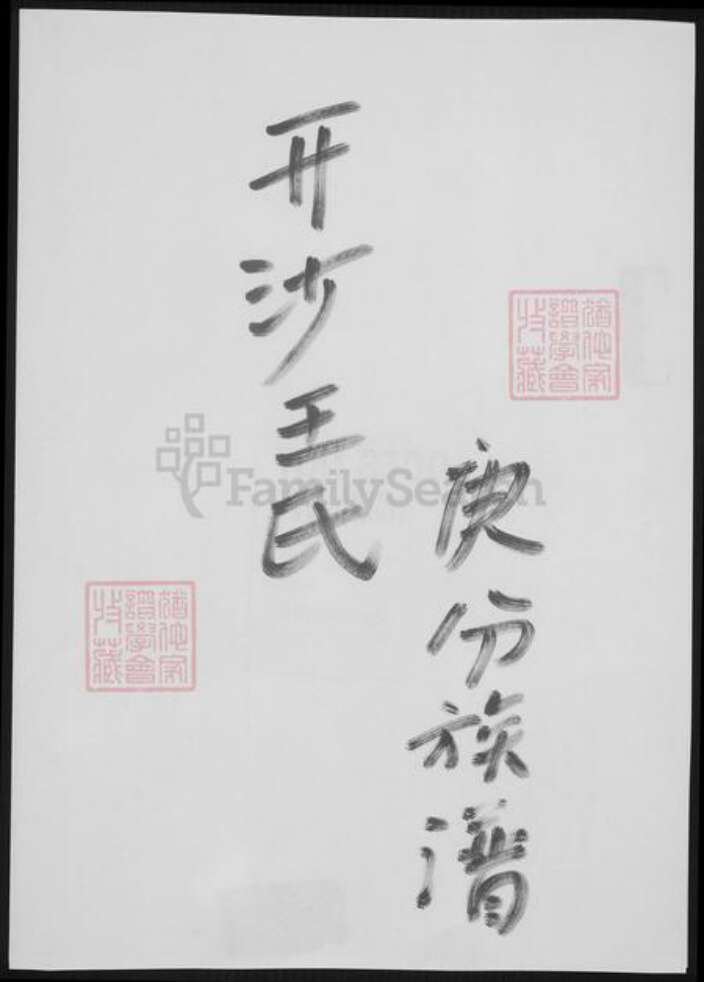 庚分族谱
开沙王氏
猶他家
譜學會
收藏
猶他家
譜學會
收藏
FamilySearch